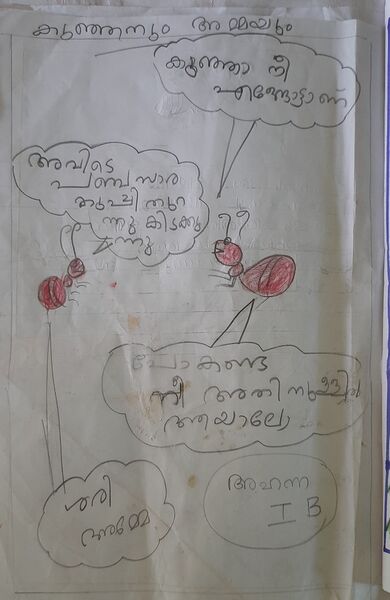 കുഞ്ഞനും അമ്മയും
കുഞ്ഞാ നീ
എങ്ങോട്ടാണ്
അവിടെ
പഞ്ചസാര
തുപ്പി തുറ
ന്നു കിടക്കു
ന്നു
പോകണ്ട
നീ അതിനുള്ളിൽ
ആയാലോ
ശരി
അമ്മേ
അഹന്ന
I B